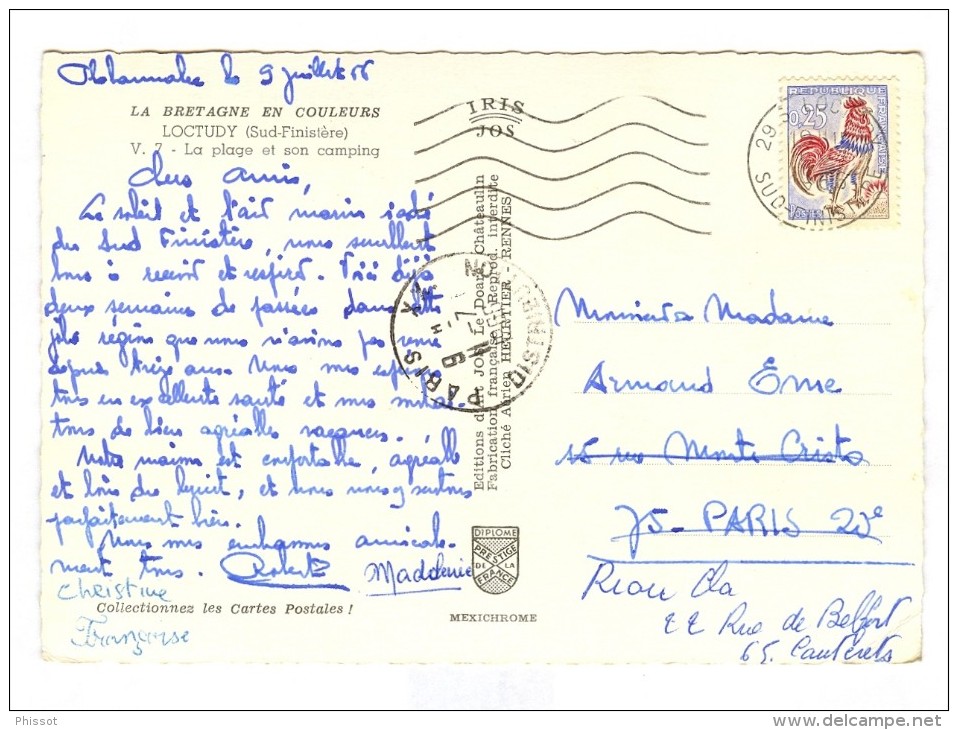 le 9 juillet 66
LA BRETAGNE EN COULEURS
LOCTUDY (Sud-Finistère)
V. 7 - La plage et son camping
Chers amis,
Le soleil et l'air marin iodé
du Sud Finistère, nous
à et Voici déjà
deux semaines de passées dans cette
jolie région que nous n'avions pas revue
depuis treize ans. Nous vous espérons
tous en excellente santé et vous
tous de bien agréables vacances.
Notre maison est confortable, agréable
et loin du bruit, et nous nous y sentons
parfaitement bien.
Nous vous embrassons amicale-
ment tous. Robert Madeleine
Christine
Françoise
Collectionnez les Cartes Postales !
IRIS
JOS
Editions d'Art JOS Le Doaré, Châteaulin
Fabrication française - Reprod. interdite
Cliché Aérien HEURTIER - RENNES
DIPLOME
PRESTIGE
DE LA
FRANCE
MEXICHROME
REPUBLIQUE FRANÇAISE
0,25
29 LOCTUDY
SUD-FINISTERE
PARIS
DISTRIBUTION
Monsieur Madame
Armand Eme
55 rue Monte Cristo
75 - PARIS 20e
22 Rue de Belfort
65. Cauterets
Phissot
delcampe.net